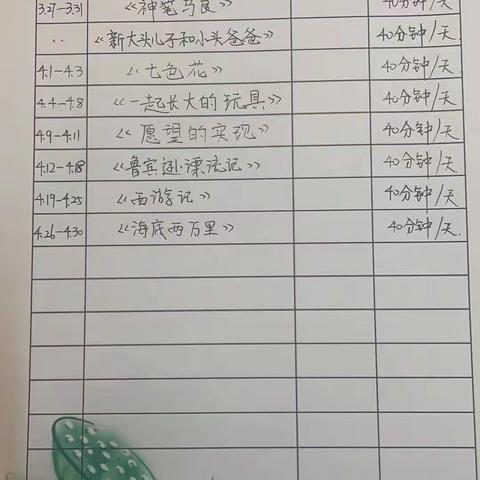 3.27-3.31 《神笔马良》 40分钟/天
.. 《新大头儿子和小头爸爸》 40分钟/天
4.1-4.3 《七色花》 40分钟/天
4.4-4.8 《一起长大的玩具》 40分钟/天
4.9-4.11 《愿望的实现》 40分钟/天
4.12-4.18 《鲁宾逊漂流记》 40分钟/天
4.19-4.25 《西游记》 40分钟/天
4.26-4.30 《海底两万里》 40分钟/天.